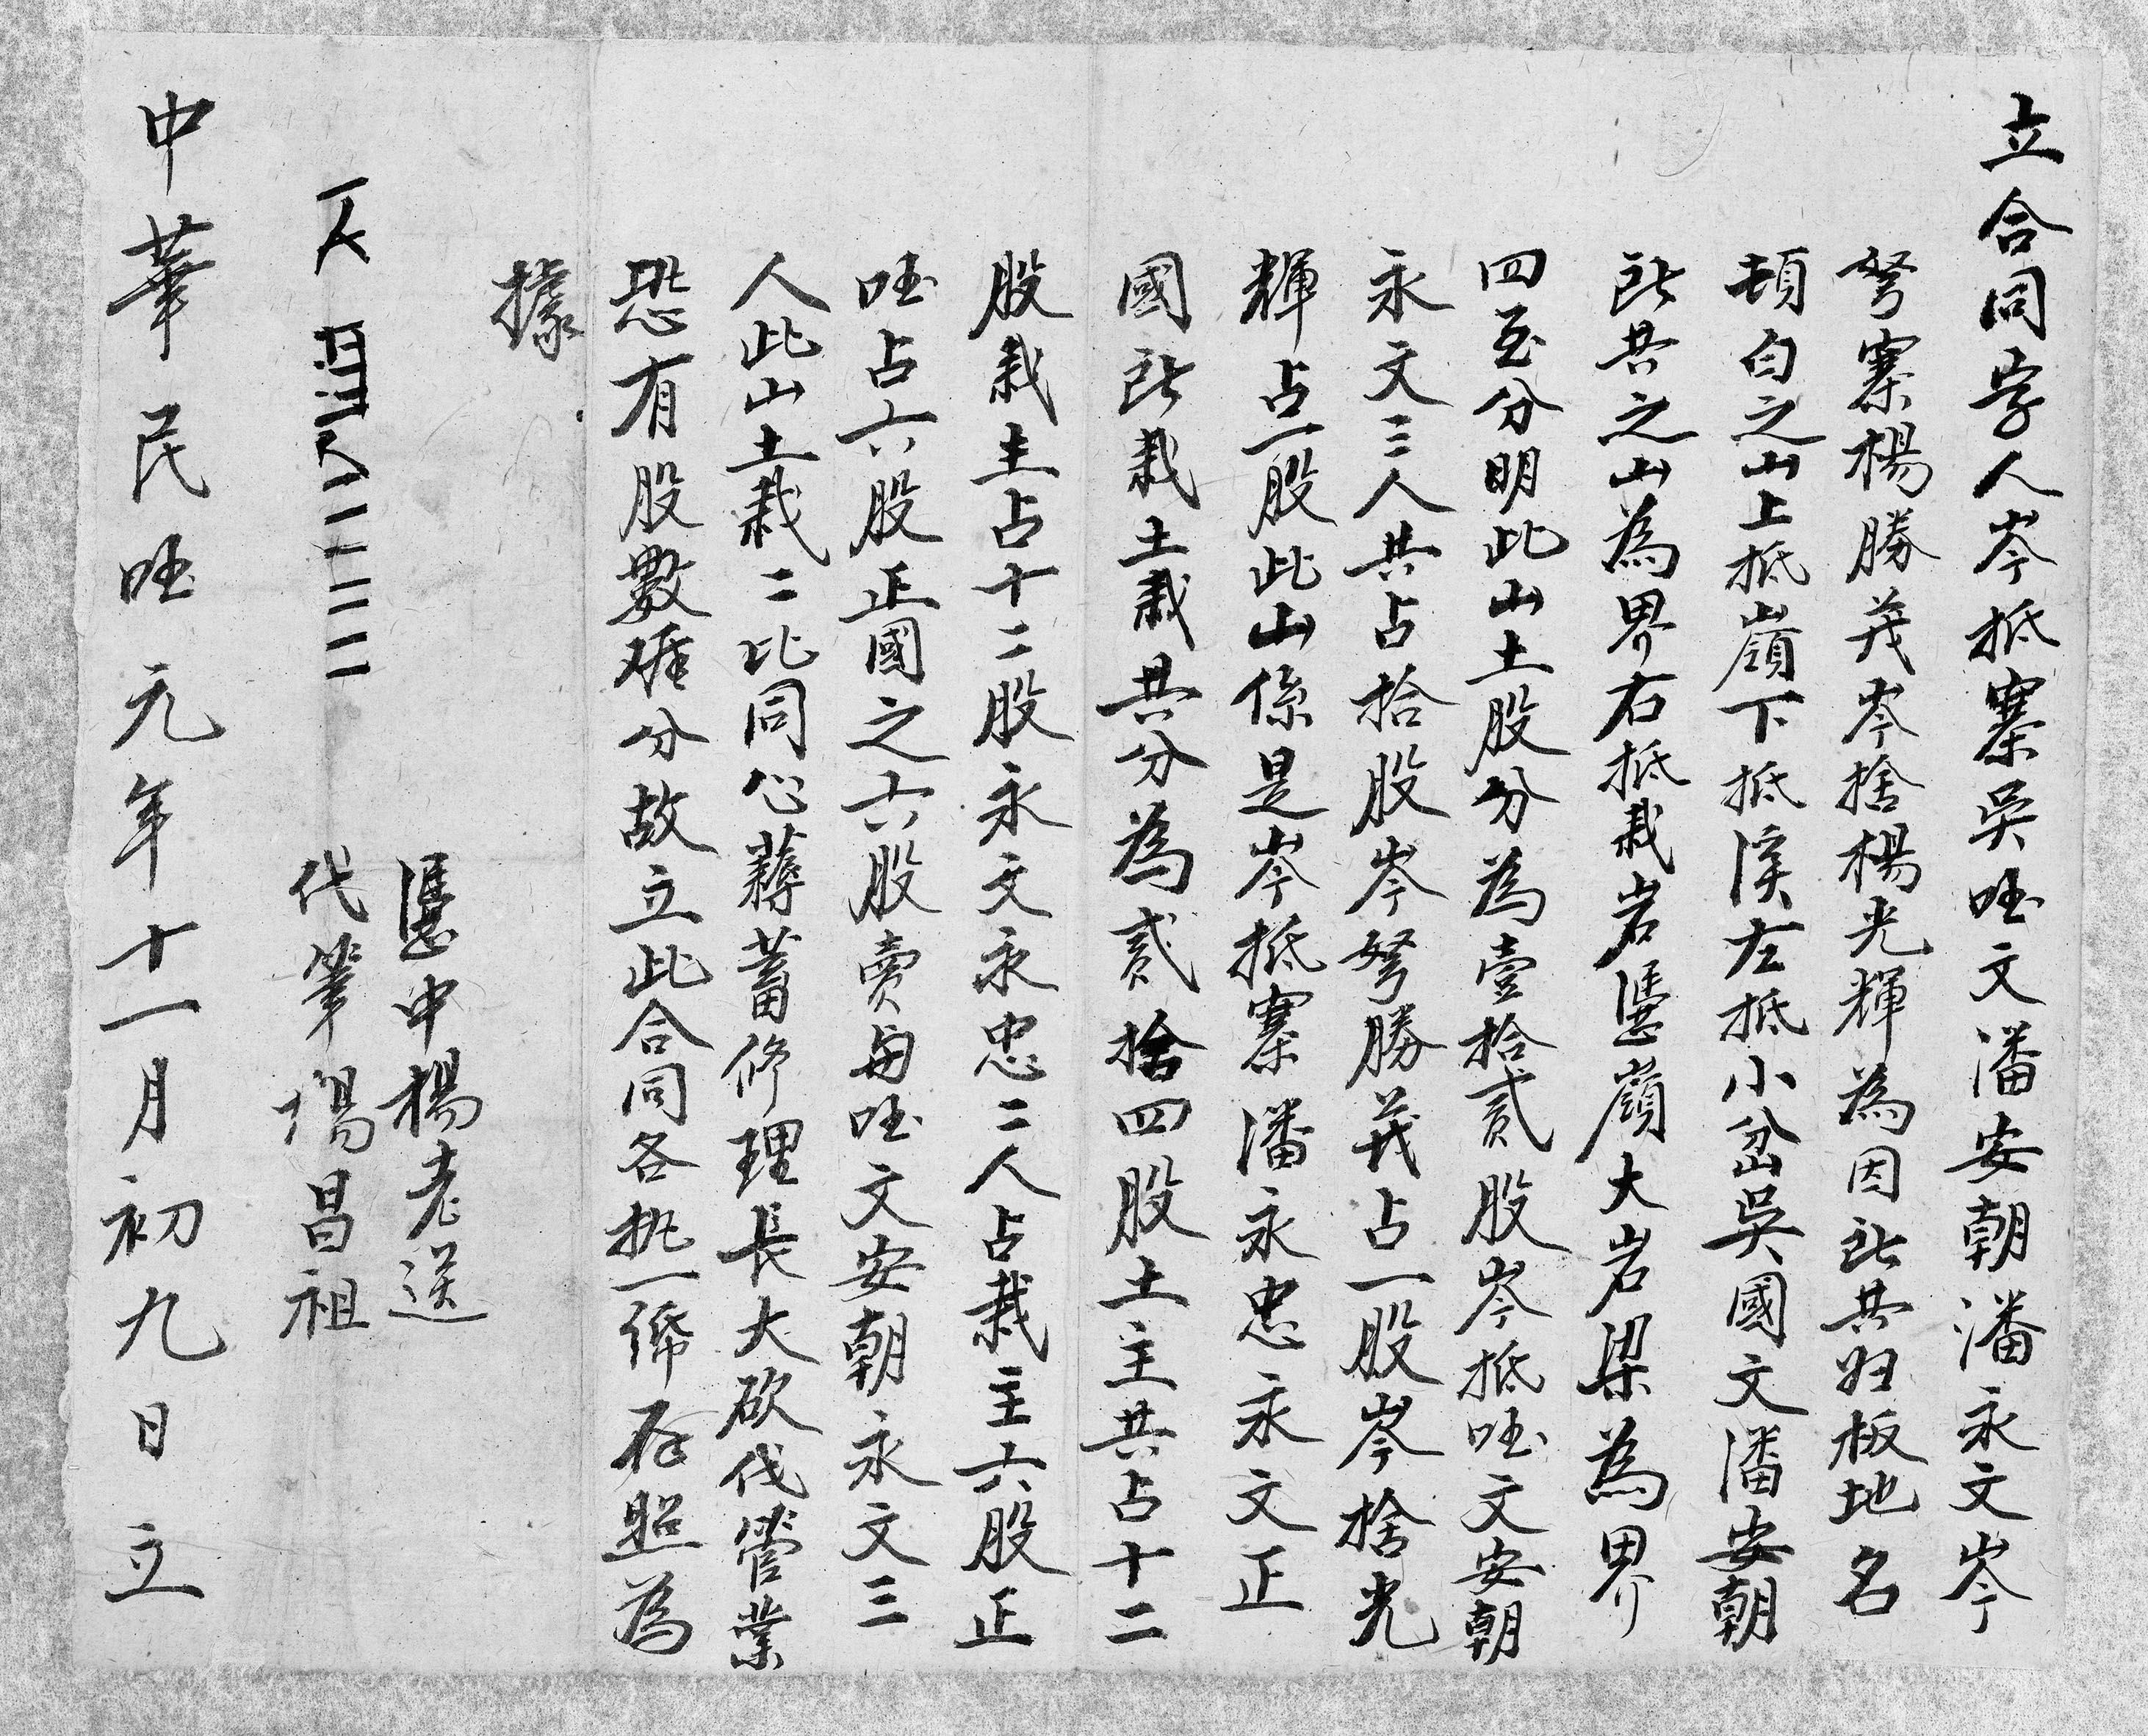 立合同字人岑抵寨吳呸文潘安朝潘永文岑
孥寨楊勝義岑捨楊光輝為因政共归板地名
頓白之山上抵嶺下抵溪左抵小岔吳國文潘安朝
政共之山為界右抵栽岩憑嶺大岩梁為界
四至分明此山土股分為壹拾貳股岑抵呸文安朝
永文三人共占拾股岑孥勝義占一股岑捨光
輝占一股此山係是岑抵寨潘永忠永文正
國政栽土栽共分為貳捨四股土主共占十二
股栽主占十二股永文永忠二人占栽主六股正
呸占六股正國之六股賣与呸文安朝永文三
人此山土栽二比同心薅蓄修理長大砍伐管業
恐有股數难分故立此合同各执一帋存照為
據
憑中楊老送
代筆楊昌祖
中華民呸元年十一月初九日立